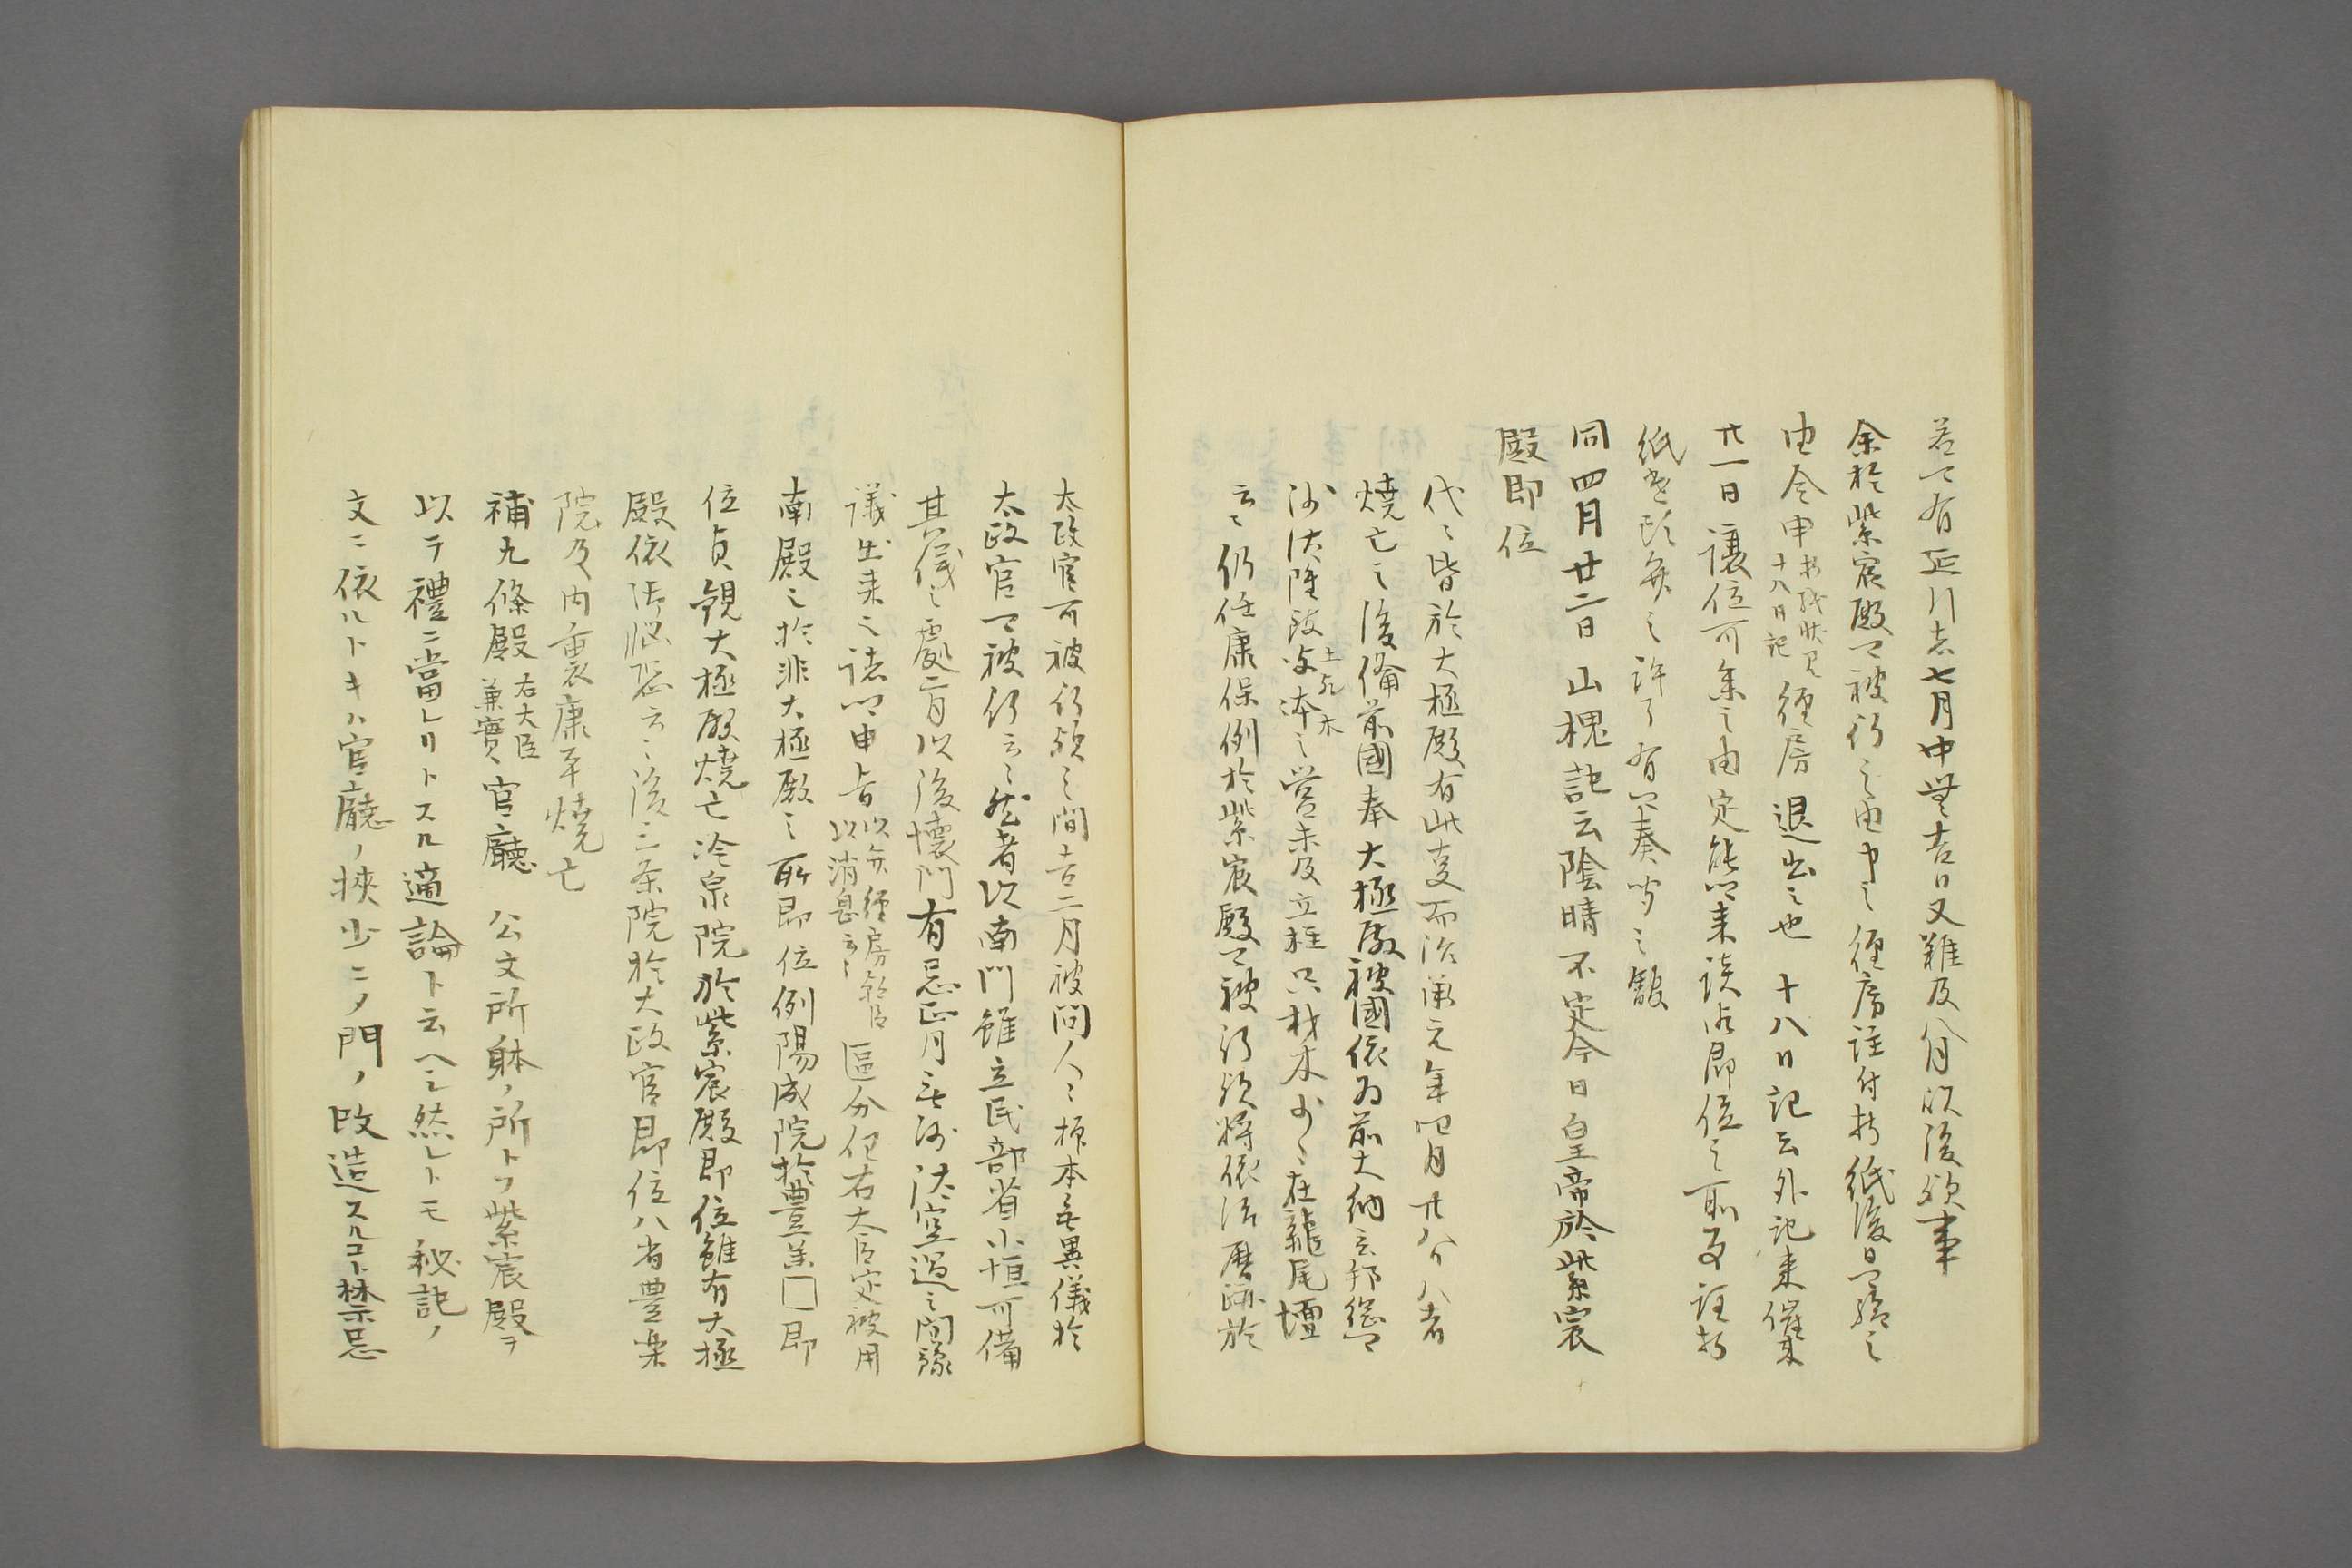 若可有延引者七月中無吉日又難及八月以後歟事
余於紫宸殿可被行之由申之経房註付折紙後日可覧之
由令申折紙状見十八日記経房退出之也十八日記云外記来催
廿一日譲位可参之由定能卿来談御即位之所事註折
紙遣頭弁之許了有可奏聞之報
同四月廿二日山槐記云陰晴不定今日皇帝於紫宸
殿即位
代々皆於大極殿有此事而治承元年四月廿八日八省
焼亡之後備前國奉大極殿被國依為前大納言邦綱可
沙汰隆改
之営未及立柱只材木少々在龍尾壇
云々仍任康保例於紫宸殿可被行歟将依治暦跡於
太政官可被行歟之間去二月被問人々
本無異儀於
太政官可被行云々然者以南門雖立民部省小垣可備
其儀之處二月以後懐門有忌正月無沙汰空過之間豫
議出来之諸卿申旨以弁経房朝臣以消息云々區分但右大臣定被用
南殿之於非大極殿之所即位例陽成院於豊楽□即
位貞観大極殿焼亡冷泉院於紫宸殿即位雖有大極
殿依御悩恐云々後三条院於大政官即位八省豊楽
院及内裏康平焼亡
補九條殿右大臣兼實官廳公文所躰ノ所トツ紫宸殿ヲ
以テ禮ニ當レリトスル適論ト云ヘシ然レトモ秘記ノ
文ニ依ルトキハ官廳ノ挾少ニメ門ノ改造スルコト禁忌